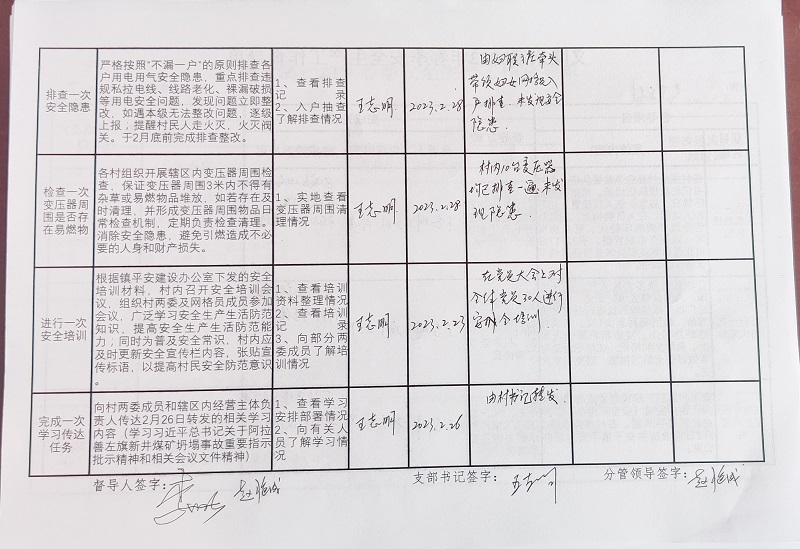 排查一次
安全隐患
严格按照“不漏一户”的原则排查各
户用电用气安全隐患，重点排查违
规私拉电线、线路老化、裸漏破损
等用电安全问题，发现问题立即整
改，如遇本级无法整改问题，逐级
上报，提醒村民人走火灭，火灭阀
关。于2月底前完成排查整改。
1、查看排查
记录
2、入户抽查
了解排查情况
王志明
2023.2.28
由妇联主席牵头
带领妇女网格入
户排查，未发现安全
隐患.
检查一次
变压器周
围是否存
在易燃物
各村组织开展辖区内变压器周围检
查，保证变压器周围3米内不得有
杂草或易燃物品堆放，如若存在及
时清理，并形成变压器周围物品日
常检查机制，定期负责检查清理。
消除安全隐患，避免引燃造成不必
要的人身和财产损失。
1、实地查看
变压器周围清
理情况
王志明
2023.2.28
村内10台变压器
均已排查一遍,未发
现隐患.
进行一次
安全培训
根据镇平安建设办公室下发的安全
培训材料，村内召开安全培训会
议，组织村两委及网格员成员参加
会议，广泛学习安全生产生活防范
知识，提高安全生产生活防范能
力；同时为普及安全常识，村内应
及时更新安全宣传栏内容，张贴宣
传标语，以提高村民安全防范意识
。
1、查看培训
资料整理情况
2、查看培训
记录
3、向部分两
委成员了解培
训情况
王志明
2023.2.23
在党员大会上对
全体党员30人进行
安全培训.
完成一次
学习传达
任务
向村两委成员和辖区内经营主体负
责人传达2月26日转发的相关学习
内容（学习习近平总书记关于阿拉
善左旗新井煤矿坍塌事故重要指示
批示精神和相关会议文件精神）
1、查看学习
安排部署情况
2、向有关人
员了解学习情
况
王志明
2023.2.26
由村书记转发.
督导人签字：
支部书记签字：
分管领导签字：